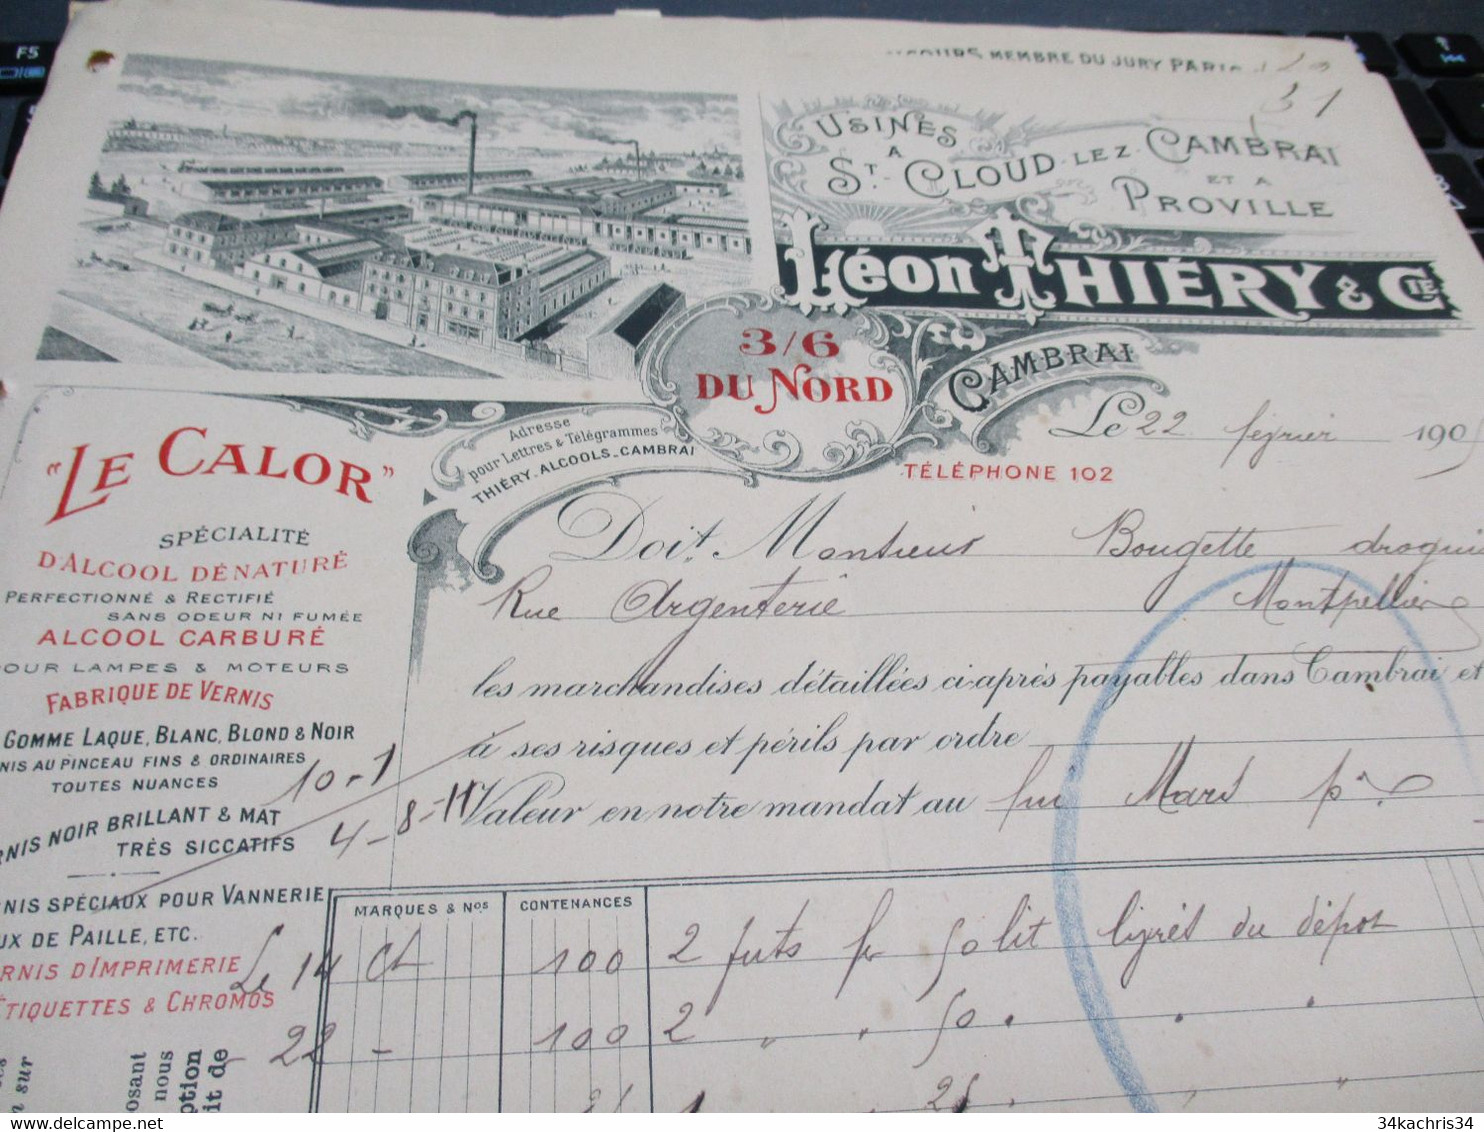 F5
MEMBRE DU JURY PARIS
31
USINES
A
ST. CLOUD-LEZ-CAMBRAI
ET A
PROVILLE
Léon THIÉRY & CIE
CAMBRAI
3/6
DU NORD
Adresse
pour Lettres & Télégrammes
THIÉRY. ALCOOLS_CAMBRAI
Le 22 février 1905
TÉLÉPHONE 102
"LE CALOR"
SPÉCIALITÉ
D'ALCOOL DÉNATURÉ
PERFECTIONNÉ & RECTIFIÉ
SANS ODEUR NI FUMÉE
ALCOOL CARBURÉ
POUR LAMPES & MOTEURS
FABRIQUE DE VERNIS
GOMME LAQUE, BLANC, BLOND & NOIR
NIS AU PINCEAU FINS & ORDINAIRES
TOUTES NUANCES
RNIS NOIR BRILLANT & MAT
TRÈS SICCATIFS
NIS SPÉCIAUX POUR VANNERIE
UX DE PAILLE, ETC.
RNIS D'IMPRIMERIE
ÉTIQUETTES & CHROMOS
Doit Monsieur Bougette droguis
Rue Argenterie Montpellier
les marchandises détaillées ci-après payables dans Cambrai et
à ses risques et périls par ordre
10-1
4-8-11
Valeur en notre mandat au fin Mars pr.
MARQUES & Nos CONTENANCES
Le 14 Ch 100 2 futs fer 50 lit livrés du dépot
22 - 100 2 " " 50 " " "
1 25 "
posant
nous
ption
it de
n sur
34kachris34